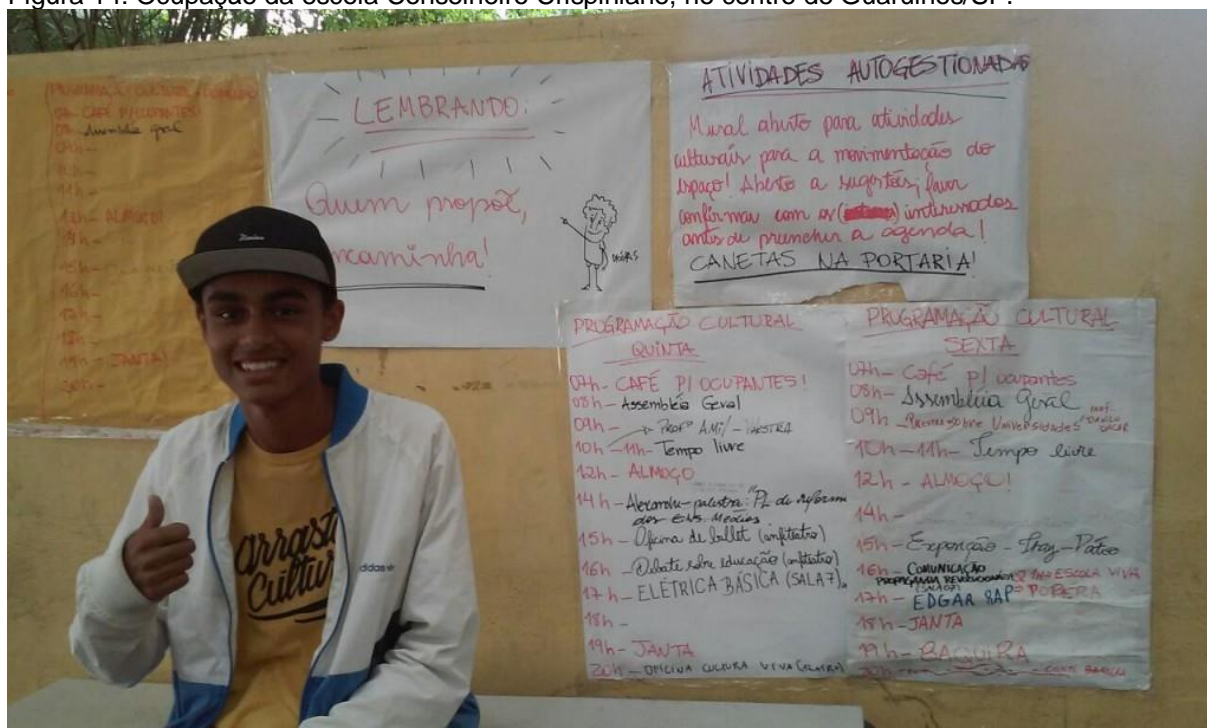 Ocupação da escola Conselheiro Crispiniano, no centro de Guarulhos/SP.
PROGRAMAÇÃO CULTURAL
CAFÉ P/OCUPANTES!
Assembléia geral
09h-
11h-
12h- ALMOÇO!
16h-
17h-
18h-
19h- JANTA!
20h-
LEMBRANDO:
Quem propõe,
encaminha!
ATIVIDADES AUTOGESTIONADAS
Mural aberto para atividades
culturais para a movimentação do
espaço! Aberto a sugestões; favor
confirmar com os () interessados
antes de preencher a agenda!
CANETAS NA PORTARIA!
PROGRAMAÇÃO CULTURAL
QUINTA
07h- CAFÉ P/ OCUPANTES!
08h- Assembléia Geral
09h-
10h-11h- Tempo livre
12h- ALMOÇO
14h- palestra: "PL de reforma
15h- Oficina de ballet (anfiteatro)
16h- Debate sobre educação (anfiteatro)
17h- ELÉTRICA BÁSICA (SALA 7)
18h-
19h- JANTA
20h- OFICINA CULTURA VIVA
PROGRAMAÇÃO CULTURAL
SEXTA
07h- Café p/ ocupantes
08h- Assembléia Geral
09h- sobre Universidades
10h-11h- Tempo livre
12h- ALMOÇO!
14h-
15h- Exposição - Thay - Páteo
16h- COMUNICAÇÃO ESCOLA VIVA
PROPAGANDA REVOLUCIONÁRIA
17h- EDGAR RAP
18h- JANTA
19h- BAGUIRA
20h-
arrasta
Cultur
adidas